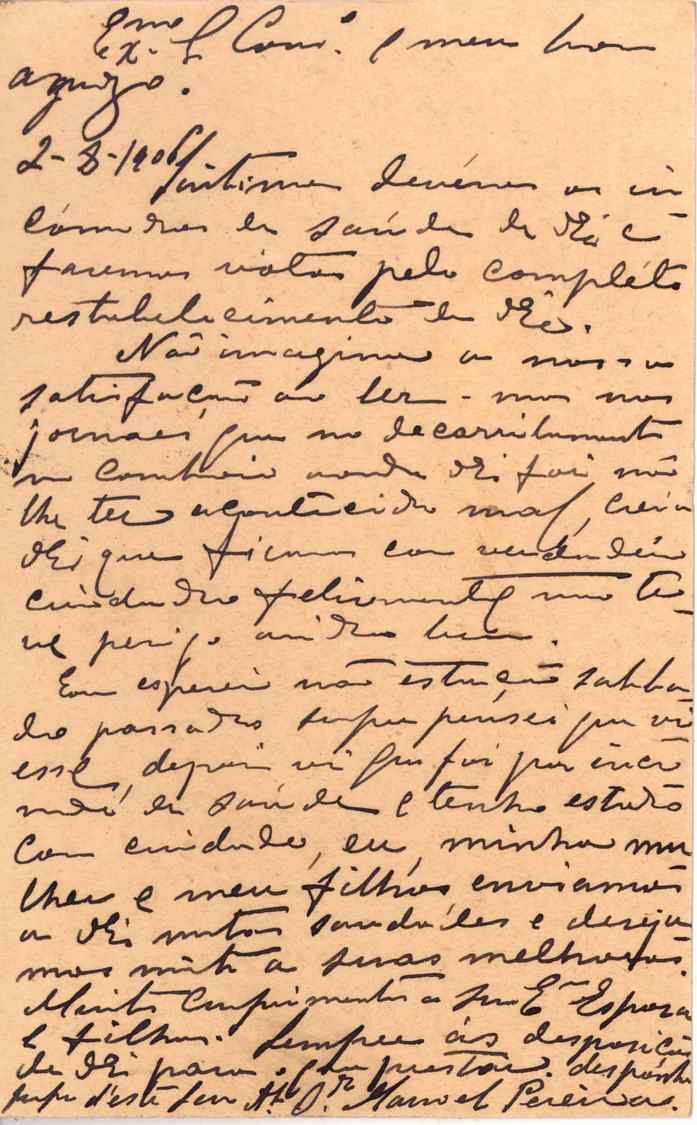 Exmo Sr Com.o e meu bom
amigo.
2-8-1906
Sentimos devéras os in
cómodos de saúde de VEx.a e
fazemos votos pelo compléto
restabelecimento de VEx.
Não imagina a nossa
satisfação ao ler-mos nos
jornaes, que no decarrilamento
no comboio aonde VEx foi não
lhe ter acontecido mal, creia
VEx que ficamos com verdadeiro
cuidado felismente não te
ve perigo
Eu esperei na estação sabba
do passado supus pensei que vi
esse, depois vi que foi por incó
modo de saúde e tenho estado
com cuidado, eu, minha mu
lher e meus filhos enviamos
a VEx muitas saudades e deseja
mos muito as suas melhoras.
Muitos cumprimentos a sua Ema Esposa
e filhos. Sempre ás desposição
de VEx para o que prestar. desponha
sempre d'este seu At. Or Manoel Pereira.